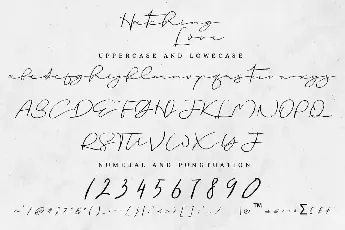 Hatching
Love
UPPERCASE AND LOWECASE
abcdefghijklmnopqrstuvwxyz
ABCDEFGHIJKLMNOPQ
RSTUVWXYZ
NUMEJAL AND PUNCTUATION
1234567890